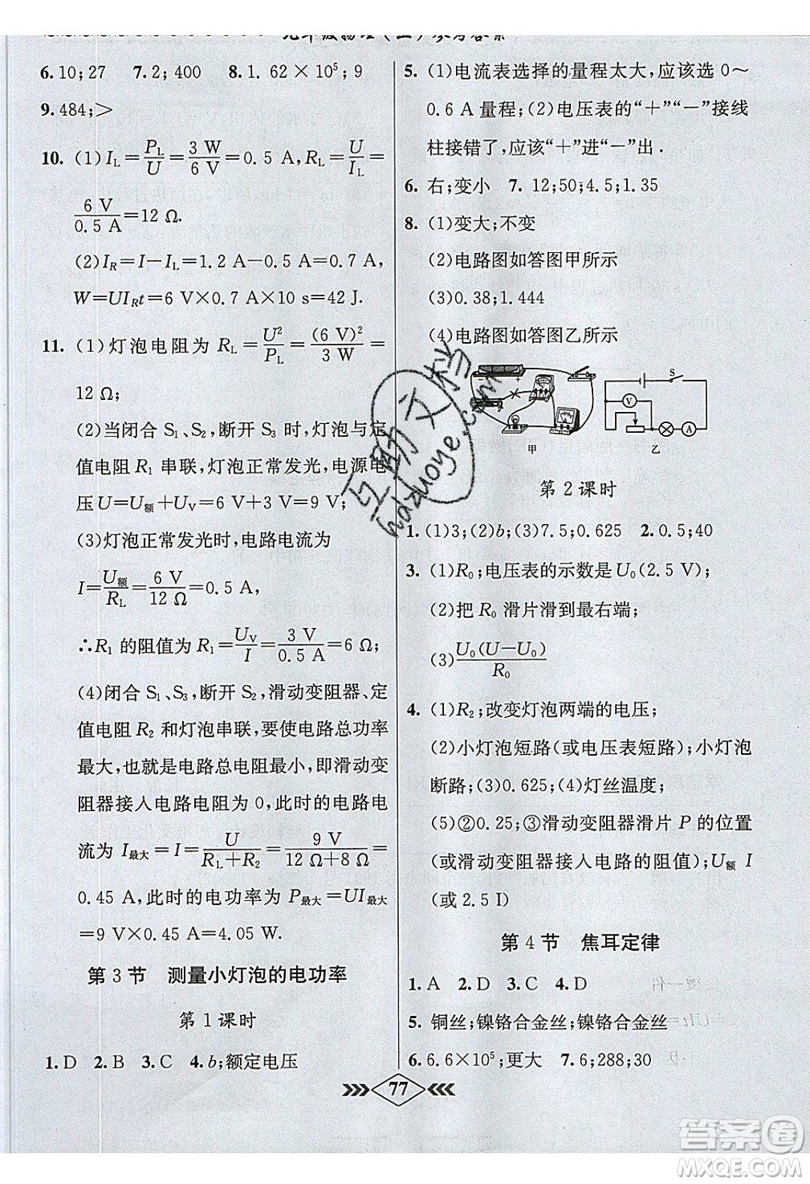 6. 10；27　7. 2；400　8. 1. 62×10⁵；9
9. 484；＞
10. (1) I_L＝P_L/U＝3 W/6 V＝0.5 A，R_L＝U/I_L＝
6 V/0.5 A＝12 Ω.
(2) I_R＝I－I_L＝1.2 A－0.5 A＝0.7 A，
W＝UI_Rt＝6 V×0.7 A×10 s＝42 J.
11. (1)灯泡电阻为 R_L＝U²/P_L＝(6 V)²/3 W＝
12 Ω；
(2)当闭合 S₁、S₂，断开 S₃ 时，灯泡与定
值电阻 R₁ 串联，灯泡正常发光，电源电
压 U＝U额＋U_V＝6 V＋3 V＝9 V；
(3)灯泡正常发光时，电路电流为
I＝U额/R_L＝6 V/12 Ω＝0.5 A，
∴R₁ 的阻值为 R₁＝U_V/I＝3 V/0.5 A＝6 Ω；
(4)闭合 S₁、S₃，断开，滑动变阻器、定
值电阻 R₂ 和灯泡串联，要使电路总功率
最大，也就是电路总电阻最小，即滑动变
阻器接入电路电阻为 0，此时的电路电
流为 I最大＝I＝U/(R_L＋R₂)＝9 V/(12 Ω＋8 Ω)＝
0.45 A，此时的电功率 P最大＝UI最大
＝9 V×0.45 A＝4.05 W.
第 3 节　测量小灯泡的电功率
第 1 课时
1. D　2. B　3. C　4. b；额定电压
5. (1)电流表选择的量程太大，应该选 0～
0.6 A 量程；(2)电压表的“＋”“－”接线
柱接错了，应该“＋”进“－”出．
6. 右；变小　7. 12；50；4.5；1.35
8. (1)变大；不变
(2)电路图如答图甲所示
(3)0.38；1.444
(4)电路图如答图乙所示
S
V
A
甲　乙
第 2 课时
1. (1)3；(2)b；(3)7.5；0.625　2. 0.5；40
3. (1)R₀；电压表的示数是 U₀(2.5 V)；
(2)把 R₀ 滑片滑到最右端；
(3)U₀(U－U₀)/R₀
4. (1)R₂；改变灯泡两端的电压；
(2)小灯泡短路(或电压表短路)；小灯泡
断路；(3)0.625；(4)灯丝温度；
(5)②0.25；③滑动变阻器滑片 P 的位置
(或滑动变阻器接入电路的阻值)；U额 I
(或 2.5 I)
第 4 节　焦耳定律
1. A　2. D　3. C　4. D
5. 铜丝；镍铬合金丝；镍铬合金丝
6. 6.6×10⁵；更大　7. 6；288；30
77
互助文档
hdzuoye.com
答案圈
MXQE.COM